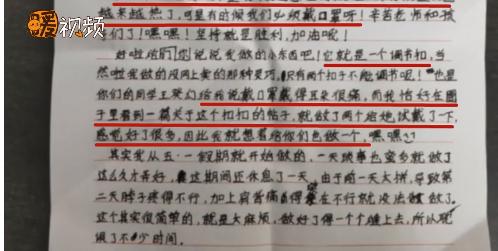 暖视频
越来越热了,可是有时候我们必须戴口罩呀!辛苦老师和孩
们了!嘿嘿!坚持就是胜利,加油呢!
好啦给们说说我做的小东西吧!它就是一个调节扣,当
然啦我做的没网上卖的那种灵巧,只有两个扣子不能调节呢!也是
你们的同学王奕幻给我说戴口罩戴得耳朵很痛,而我恰好在圈
子里看到一篇关于这个扣扣的帖子,就做了两个给她试戴了下,
感觉好了很多,因此我就想着给你们也做一个,嘿嘿
其实我从五·一假期就开始做的,一天琐事也蛮多就做了
这么久才弄好,这期间还休息了一天,由于前一天太拼,导致第
二天脖子疼得不行,加上肩背痛实在不行就没法做做了。
这个其实很简单的,就是太麻烦,做好了得一个个缝上去,所以耽
误了不少时间。